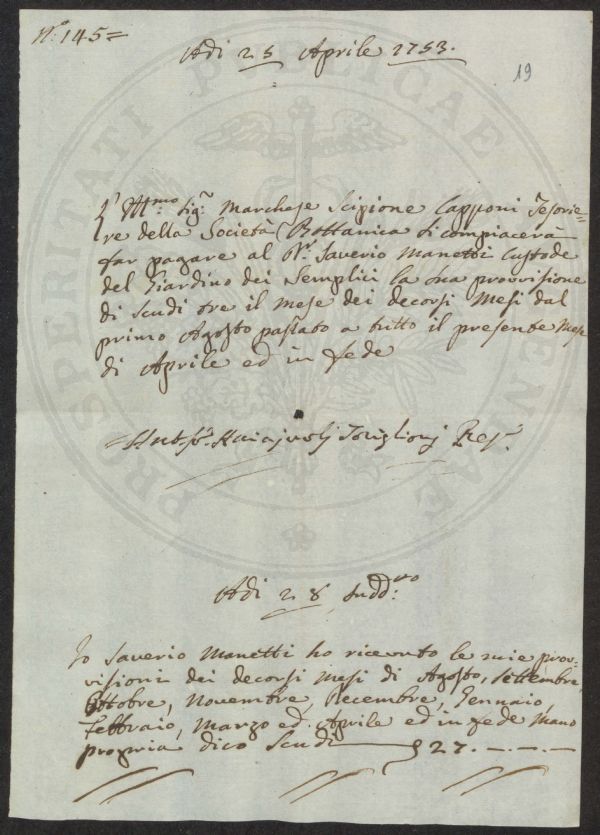 N.º 145=
19
Adi 25 Aprile 1753.
L' Ill.mo Sig.r Marchese Scipione Capponi Tesorie=
re della Società Bottanica si compiacerà
far pagare al D.r Saverio Manetti Custode
del Giardino dei Semplici la sua provvisione
di Scudi tre il mese dei decorsi Mesi dal
primo Agosto passato a tutto il presente Mese
di Aprile ed in fede
Adi 28 sudd.to
Io Saverio Manetti ho ricevuto le mie prov=
visioni dei decorsi Mesi di Agosto, Settembre,
Ottobre, Novembre, Decembre, Gennaio,
Febbraio, Marzo ed Aprile ed in fede Mano
propria dico Scudi 27.—.—.—
PROSPERITATI PUBLICAE